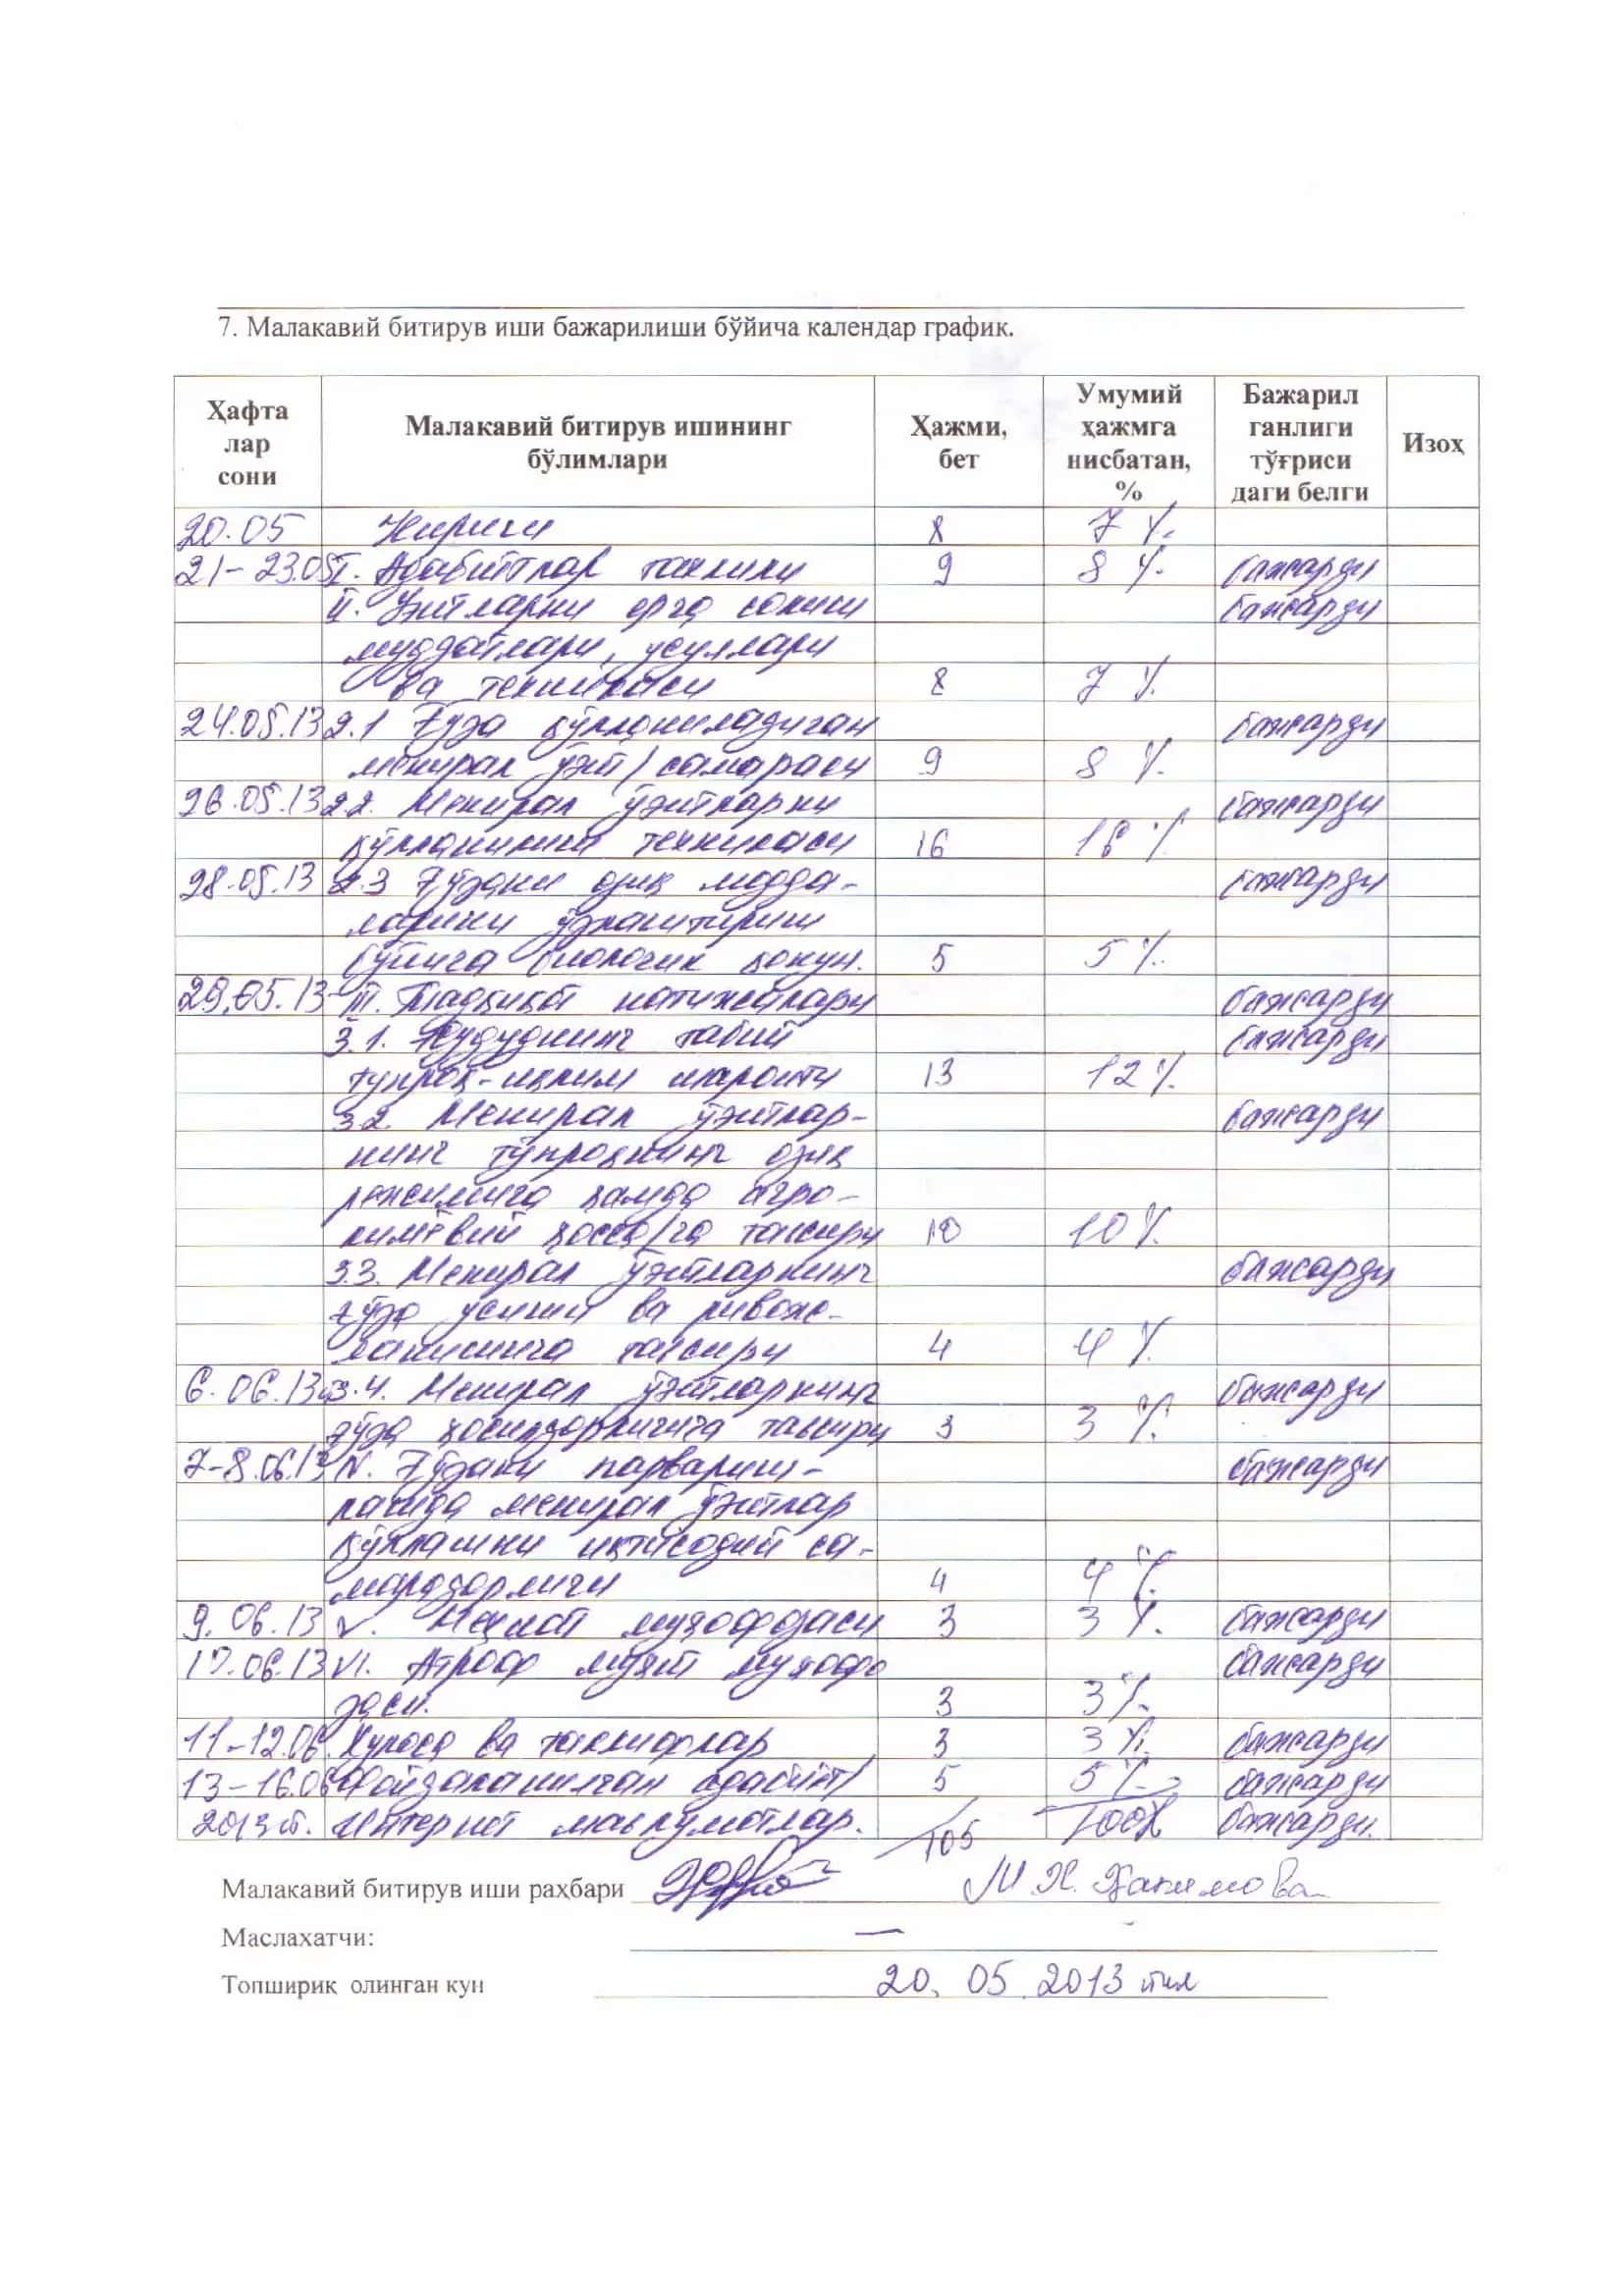 7. Малакавий битирув иши бажарилиши бўйича календар график.
Ҳафта лар сони | Малакавий битирув ишининг бўлимлари | Ҳажми, бет | Умумий ҳажмга нисбатан, % | Бажарил ганлиги тўғриси даги белги | Изоҳ
20.05 Кириш 8 7 %
21-23.05 I. Адабиётлар таҳлили 9 8 % бажарди
II. Ўғитларни ерга солиш бажарди
муддатлари, усуллари
ва техникаси 8 7 %
24.05.13 2.1 Ғўза қўлланиладиган бажарди
менирал ўғит/ самараси 9 8 %
26.05.13 2.2. Менирал ўғитларни бажарди
қўлланилиш техникаси 16 16 %
28.05.13 2.3 Ғўзани озиқ модда- бажарди
ларини ўзлаштириш
бўйича биологик қонун. 5 5 %
29.05.13 III. Тадқиқот натижалари бажарди
3.1. Ҳудуднинг табий бажарди
тупроқ-иқлим шароити 13 12 %
3.2. Менирал ўғитлар- бажарди
нинг тупроқнинг озиқ
режимига ҳамда агро-
кимёвий хосса/га таъсири 10 10 %
3.3. Менирал ўғитларнинг бажарди
ғўза усиши ва ривож-
ланишига таъсири 4 4 %
6.06.13 3.4. Менирал ўғитларнинг бажарди
ғўза ҳосилдорлигига таъсири 3 3 %
7-8.06.13 IV. Ғўзани парвариш- бажарди
лашда менирал ўғитлар
қўллашни иқтисодий са-
марадорлиги 4 4 %
9.06.13 V. Меҳнат муҳофазаси 3 3 % бажарди
10.06.13 VI. Атроф муҳит муҳофа бажарди
заси. 3 3 %
11-12.06. Хулоса ва таклифлар 3 3 % бажарди
13-16.06 Фойдаланилган адабиёт/ 5 5 % бажарди
2013 й. Интернет маълумотлар. 105 100% бажарди.
Малакавий битирув иши раҳбари М.Х. Ҳакимова
Маслахатчи: —
Топшириқ олинган кун 20. 05. 2013 йил